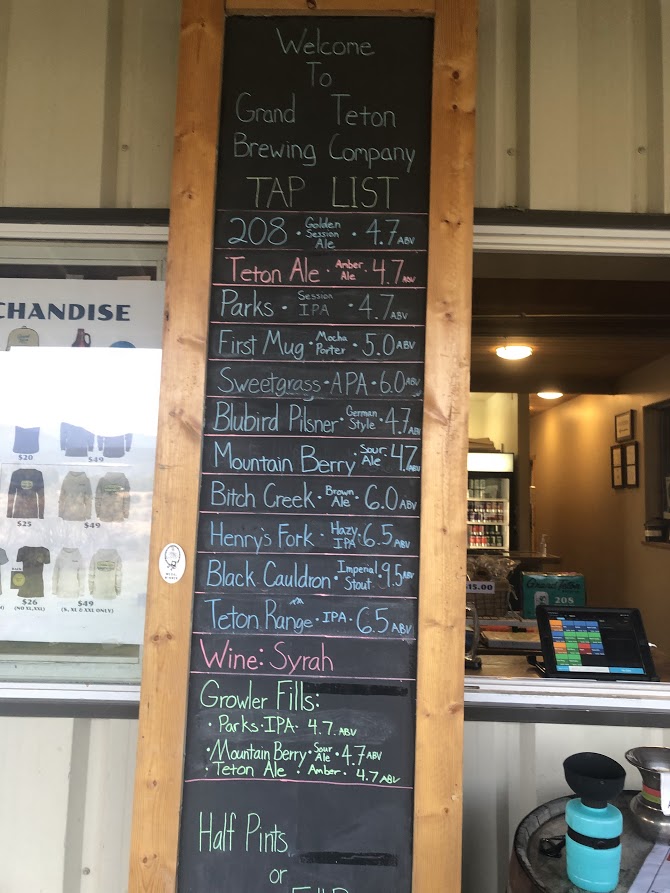 Welcome
To
Grand Teton
Brewing Company
TAP LIST
208 · Golden Session Ale · 4.7 ABV
Teton Ale · Amber Ale · 4.7 ABV
Parks · Session IPA · 4.7 ABV
First Mug · Mocha Porter · 5.0 ABV
Sweetgrass · APA · 6.0 ABV
Blubird Pilsner · German Style · 4.7 ABV
Mountain Berry · Sour Ale · 4.7 ABV
Bitch Creek · Brown Ale · 6.0 ABV
Henry's Fork · Hazy IPA · 6.5 ABV
Black Cauldron · Imperial Stout · 9.5 ABV
Teton Range · IPA · 6.5 ABV
Wine: Syrah
Growler Fills:
· Parks · IPA · 4.7 ABV
· Mountain Berry · Sour Ale · 4.7 ABV
· Teton Ale · Amber · 4.7 ABV
Half Pints
or
CHANDISE
$20
$49
$25
$49
$26
(NO XL, XXL)
$49
(S, XL & XXL ONLY)
208